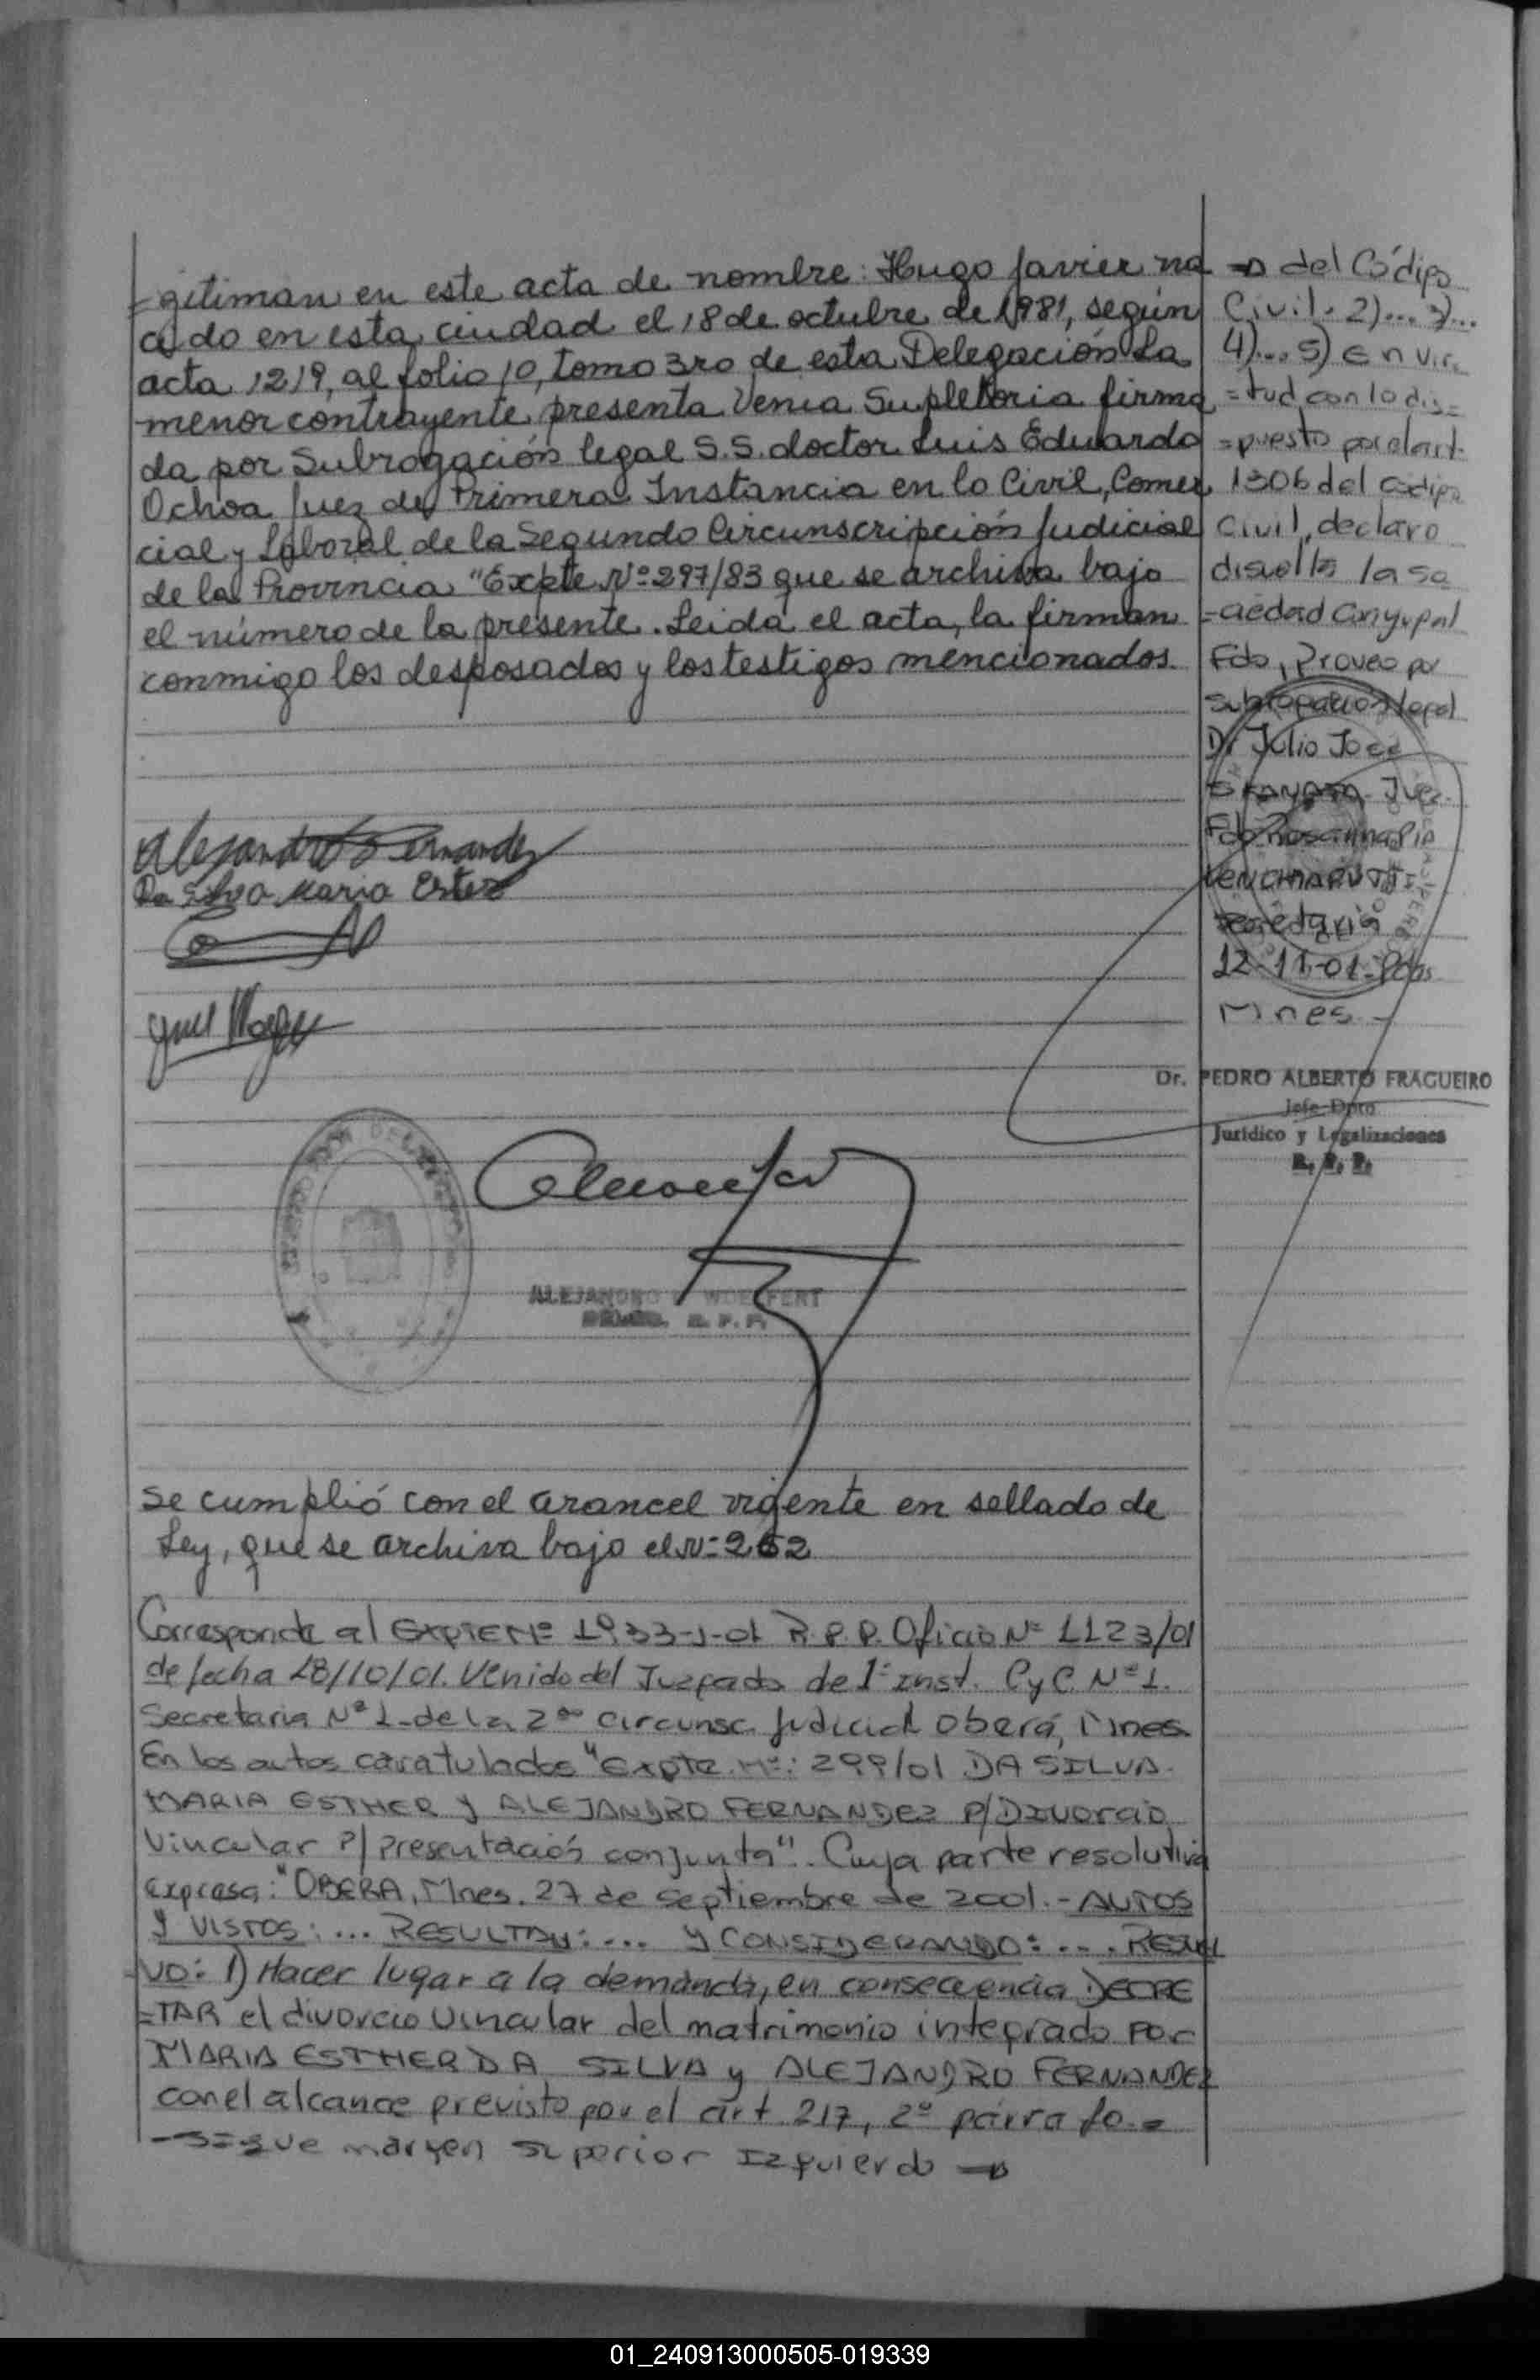 =gitiman en este acta de nombre: Hugo Javier na
cido en esta ciudad el 18 de octubre de 1981, según
acta 1219, al folio 10, tomo 3ro de esta Delegación La
menor contrayente presenta Venia Supletoria firma
da por Subrogación legal S.S. doctor Luis Eduardo
Ochoa Juez de Primera Instancia en lo Civil, Comer
cial y Laboral de la Segundo Circunscripción Judicial
de la Provincia "Expte Nº 297/83 que se archiva bajo
el número de la presente. Leida el acta, la firman
conmigo los desposados y los testigos mencionados.
Alejandro Fernandez
Da Silva Maria Ester
ALEJANDRO WOELFERT
R. P. P.
Se cumplió con el arancel vigente en sellado de
Ley, que se archiva bajo el Nº 262
Corresponde al EXPTE Nº 1933-J-01 R.P.P. Oficio Nº 1123/01
de fecha 18/10/01. Venido del Juzgado de 1ª Inst. CyC Nº 1.
Secretaria Nº 1 de la 2da circunsc. Judicial Oberá, Mnes.
En los autos caratulados "Expte. Nº: 299/01 DA SILVA
MARIA ESTHER y ALEJANDRO FERNANDEZ P/Divorcio
Vincular P/ presentación conjunta". Cuya parte resolutiva
expresa: "OBERA, Mnes. 27 de septiembre de 2001.- AUTOS
Y VISTOS: ... RESULTAN: ... Y CONSIDERANDO: ... RESUEL
-VO: 1) Hacer lugar a la demanda, en consecuencia DECRE
=TAR el divorcio vincular del matrimonio integrado por
MARIA ESTHER DA SILVA y ALEJANDRO FERNANDEZ
con el alcance previsto por el art. 217, 2º párrafo =
-Sigue margen superior Izquierdo →
→ del Código
Civil. 2)... 3)...
4)... 5) En vir
=tud con lo dis=
=puesto por el art.
1306 del código
Civil, declaro
disuelta la so
=ciedad conyugal
Fdo, Proveo por
subrogación legal
Dr Julio José
Juez.
Fdo
Secretaria
12-11-01-Pdas
Mnes -
Dr. PEDRO ALBERTO FRAGUEIRO
Jefe Dpto
Jurídico y Legalizaciones
R. P. P.
01_240913000505-019339